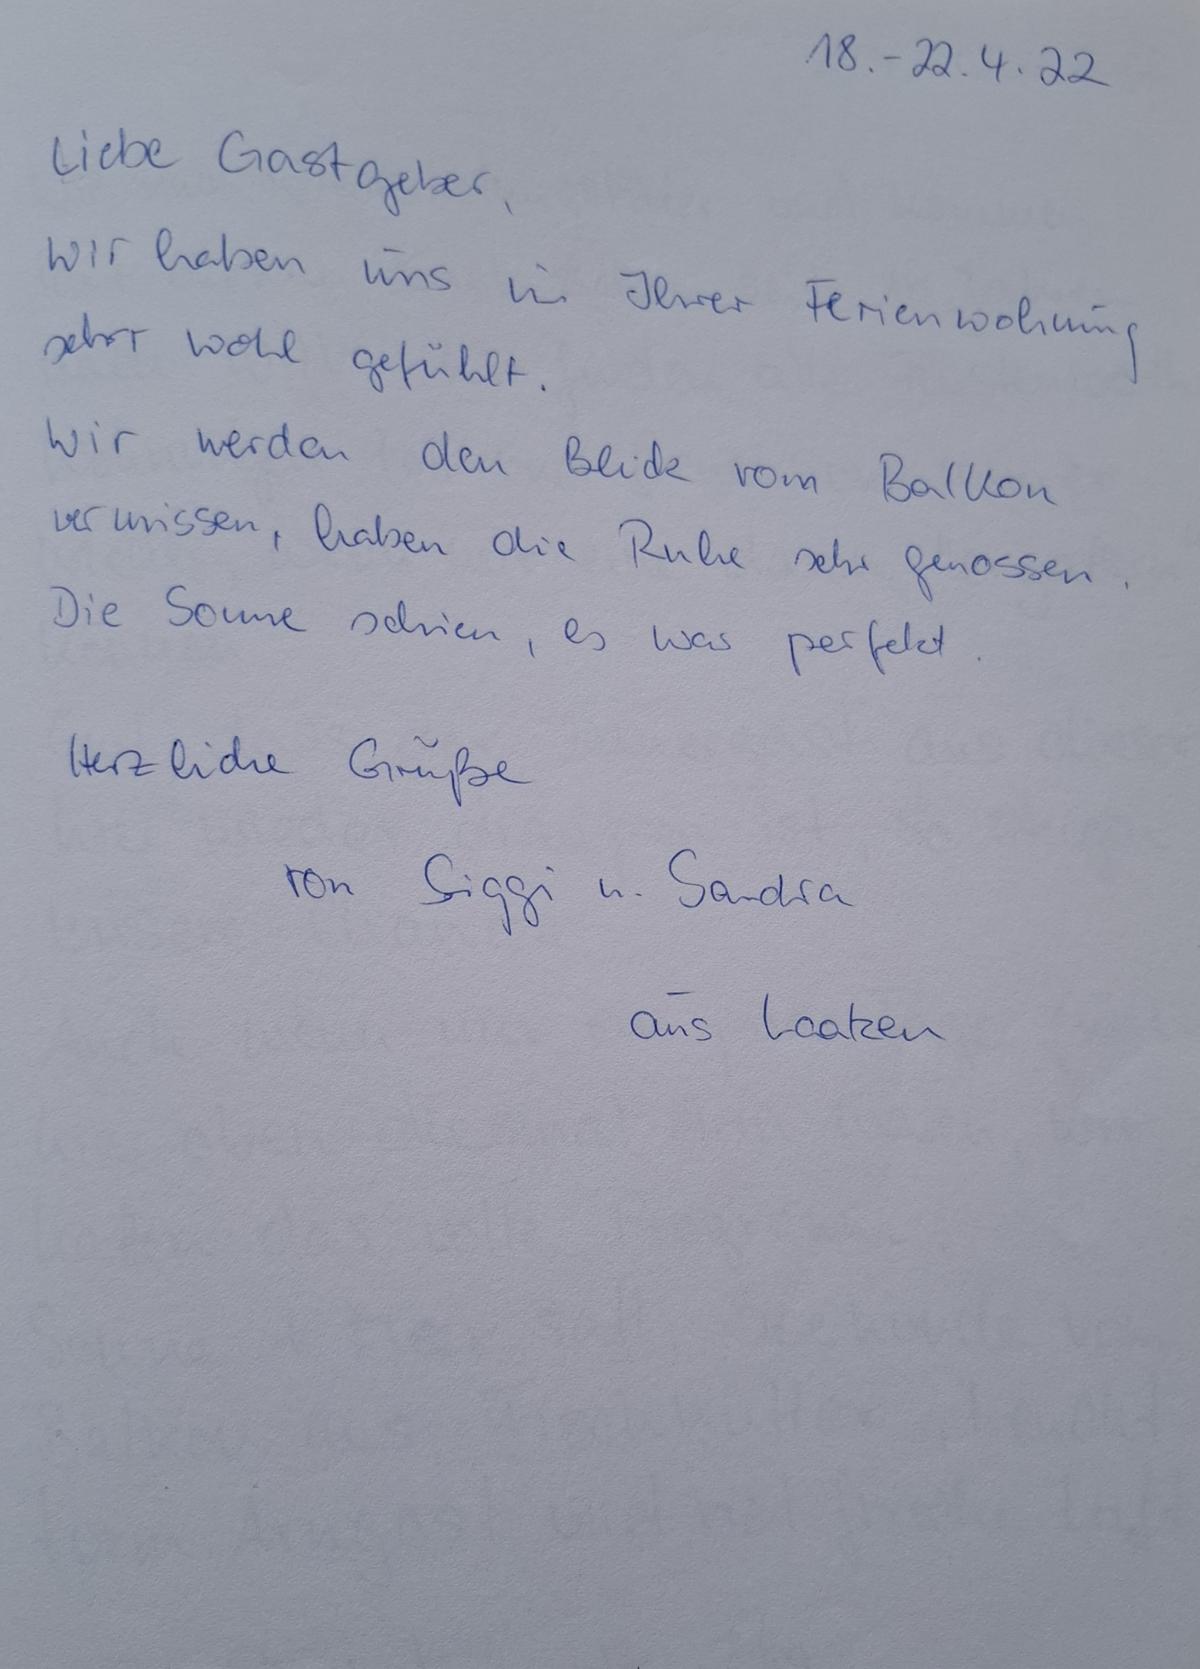 18.-22.4.22
Liebe Gastgeber,
wir haben uns in Ihrer Ferienwohnung
sehr wohl gefühlt.
Wir werden den Blick vom Balkon
vermissen, haben die Ruhe sehr genossen.
Die Sonne schien, es war perfekt.
Herzliche Grüße
von Siggi u. Sandra
aus Laatzen